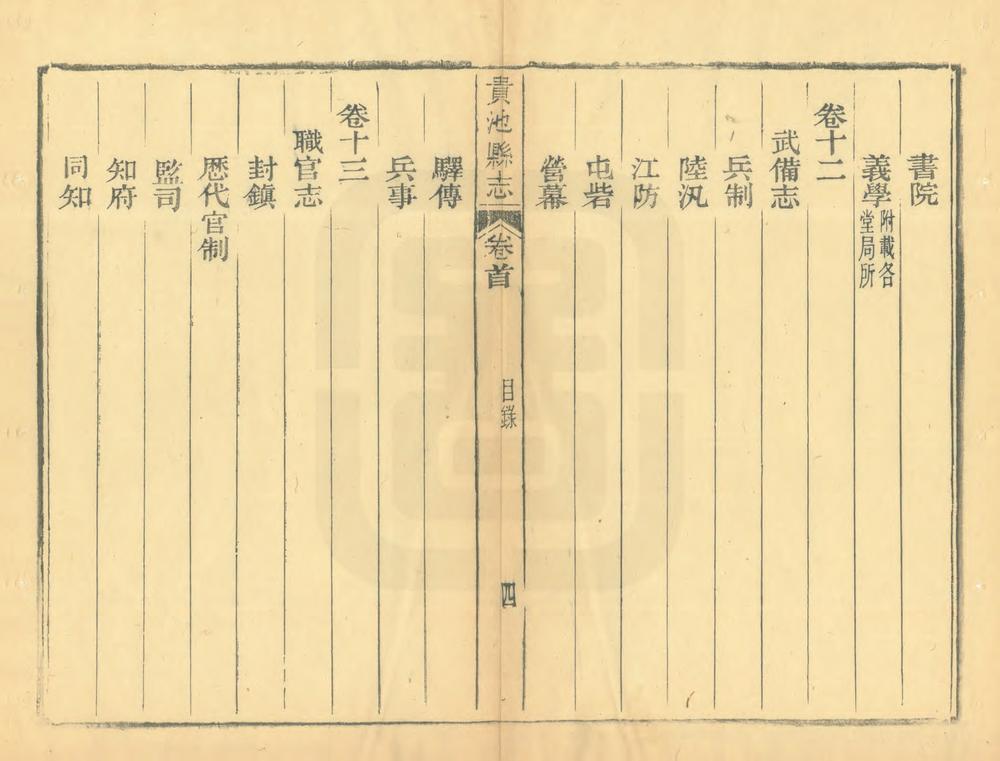 書院
義學附載各堂局所
卷十二
武備志
兵制
陸汛
江防
屯砦
營幕
貴池縣志
卷首
目錄
四
驛傳
兵事
卷十三
職官志
封鎮
歷代官制
監司
知府
同知